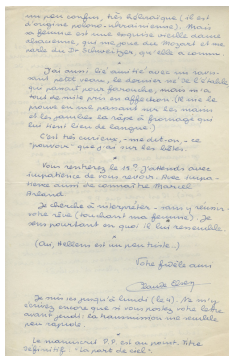 un peu confus, très hébraïque (il est
d'origine polono-ukrainienne). Mais
sa femme est une exquise vieille dame
alsacienne, qui me joue du Mozart et me
parle du Dr Schweitzer, qu'elle a connu.
J'ai aussi lié amitié avec un
petit veau, le dernier né de l'étable
qui passait pour farouche, mais m'a
tout de suite pris en affection (il me le
prouve en me passant sur les mains
et les jambes la râpe à fromage qui
lui tient lieu de langue)
C'est très curieux, – me dit-on, – ce
"pouvoir" que j'ai sur les bêtes.
Vous rentrerez le 15? J'attends avec
impatience de vous revoir. Avec impa-
tience aussi de connaître Marcel
Arland
Je cherche à interpréter – sans y réussir
votre rêve (touchant ma femme). Je
sens pourtant en quoi il lui ressemble.
(Oui, Hellens est un peu triste...)
Votre fidèle ami
Je suis ici jusqu'à lundi (le 4). Ne m'y
écrivez encore que si vous postez votre lettre
avant jeudi: la transmission me semble
peu rapide.
Le manuscrit P.F. est au point. Titre
définitif: "La part du ciel".